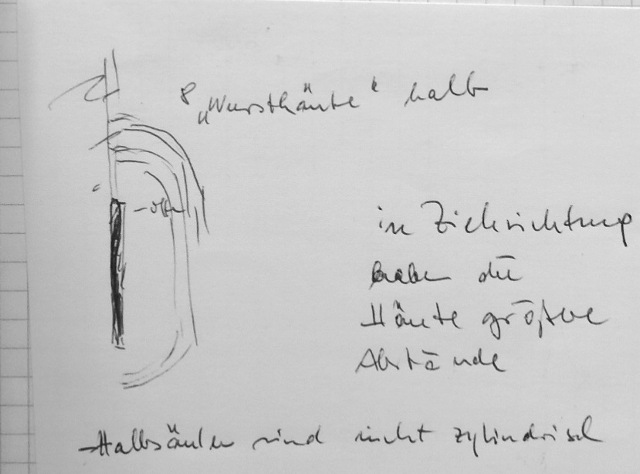 8 „Wursthäute“ halb
in Ziehrichtung
haben die
Häute größere
Abstände
Halbsäulen sind nicht zylindrisch